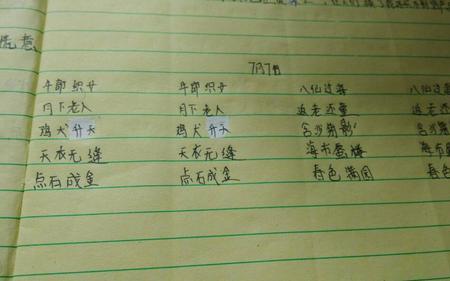 7月7日
牛郎织女 牛郎织女 八仙过海 八仙过
月下老人 月下老人 返老还童 返老还
鸡犬升天 鸡犬升天 含沙射影 含沙
天衣无缝 天衣无缝 海市蜃楼 海市
点石成金 点石成金 春色满园 春色